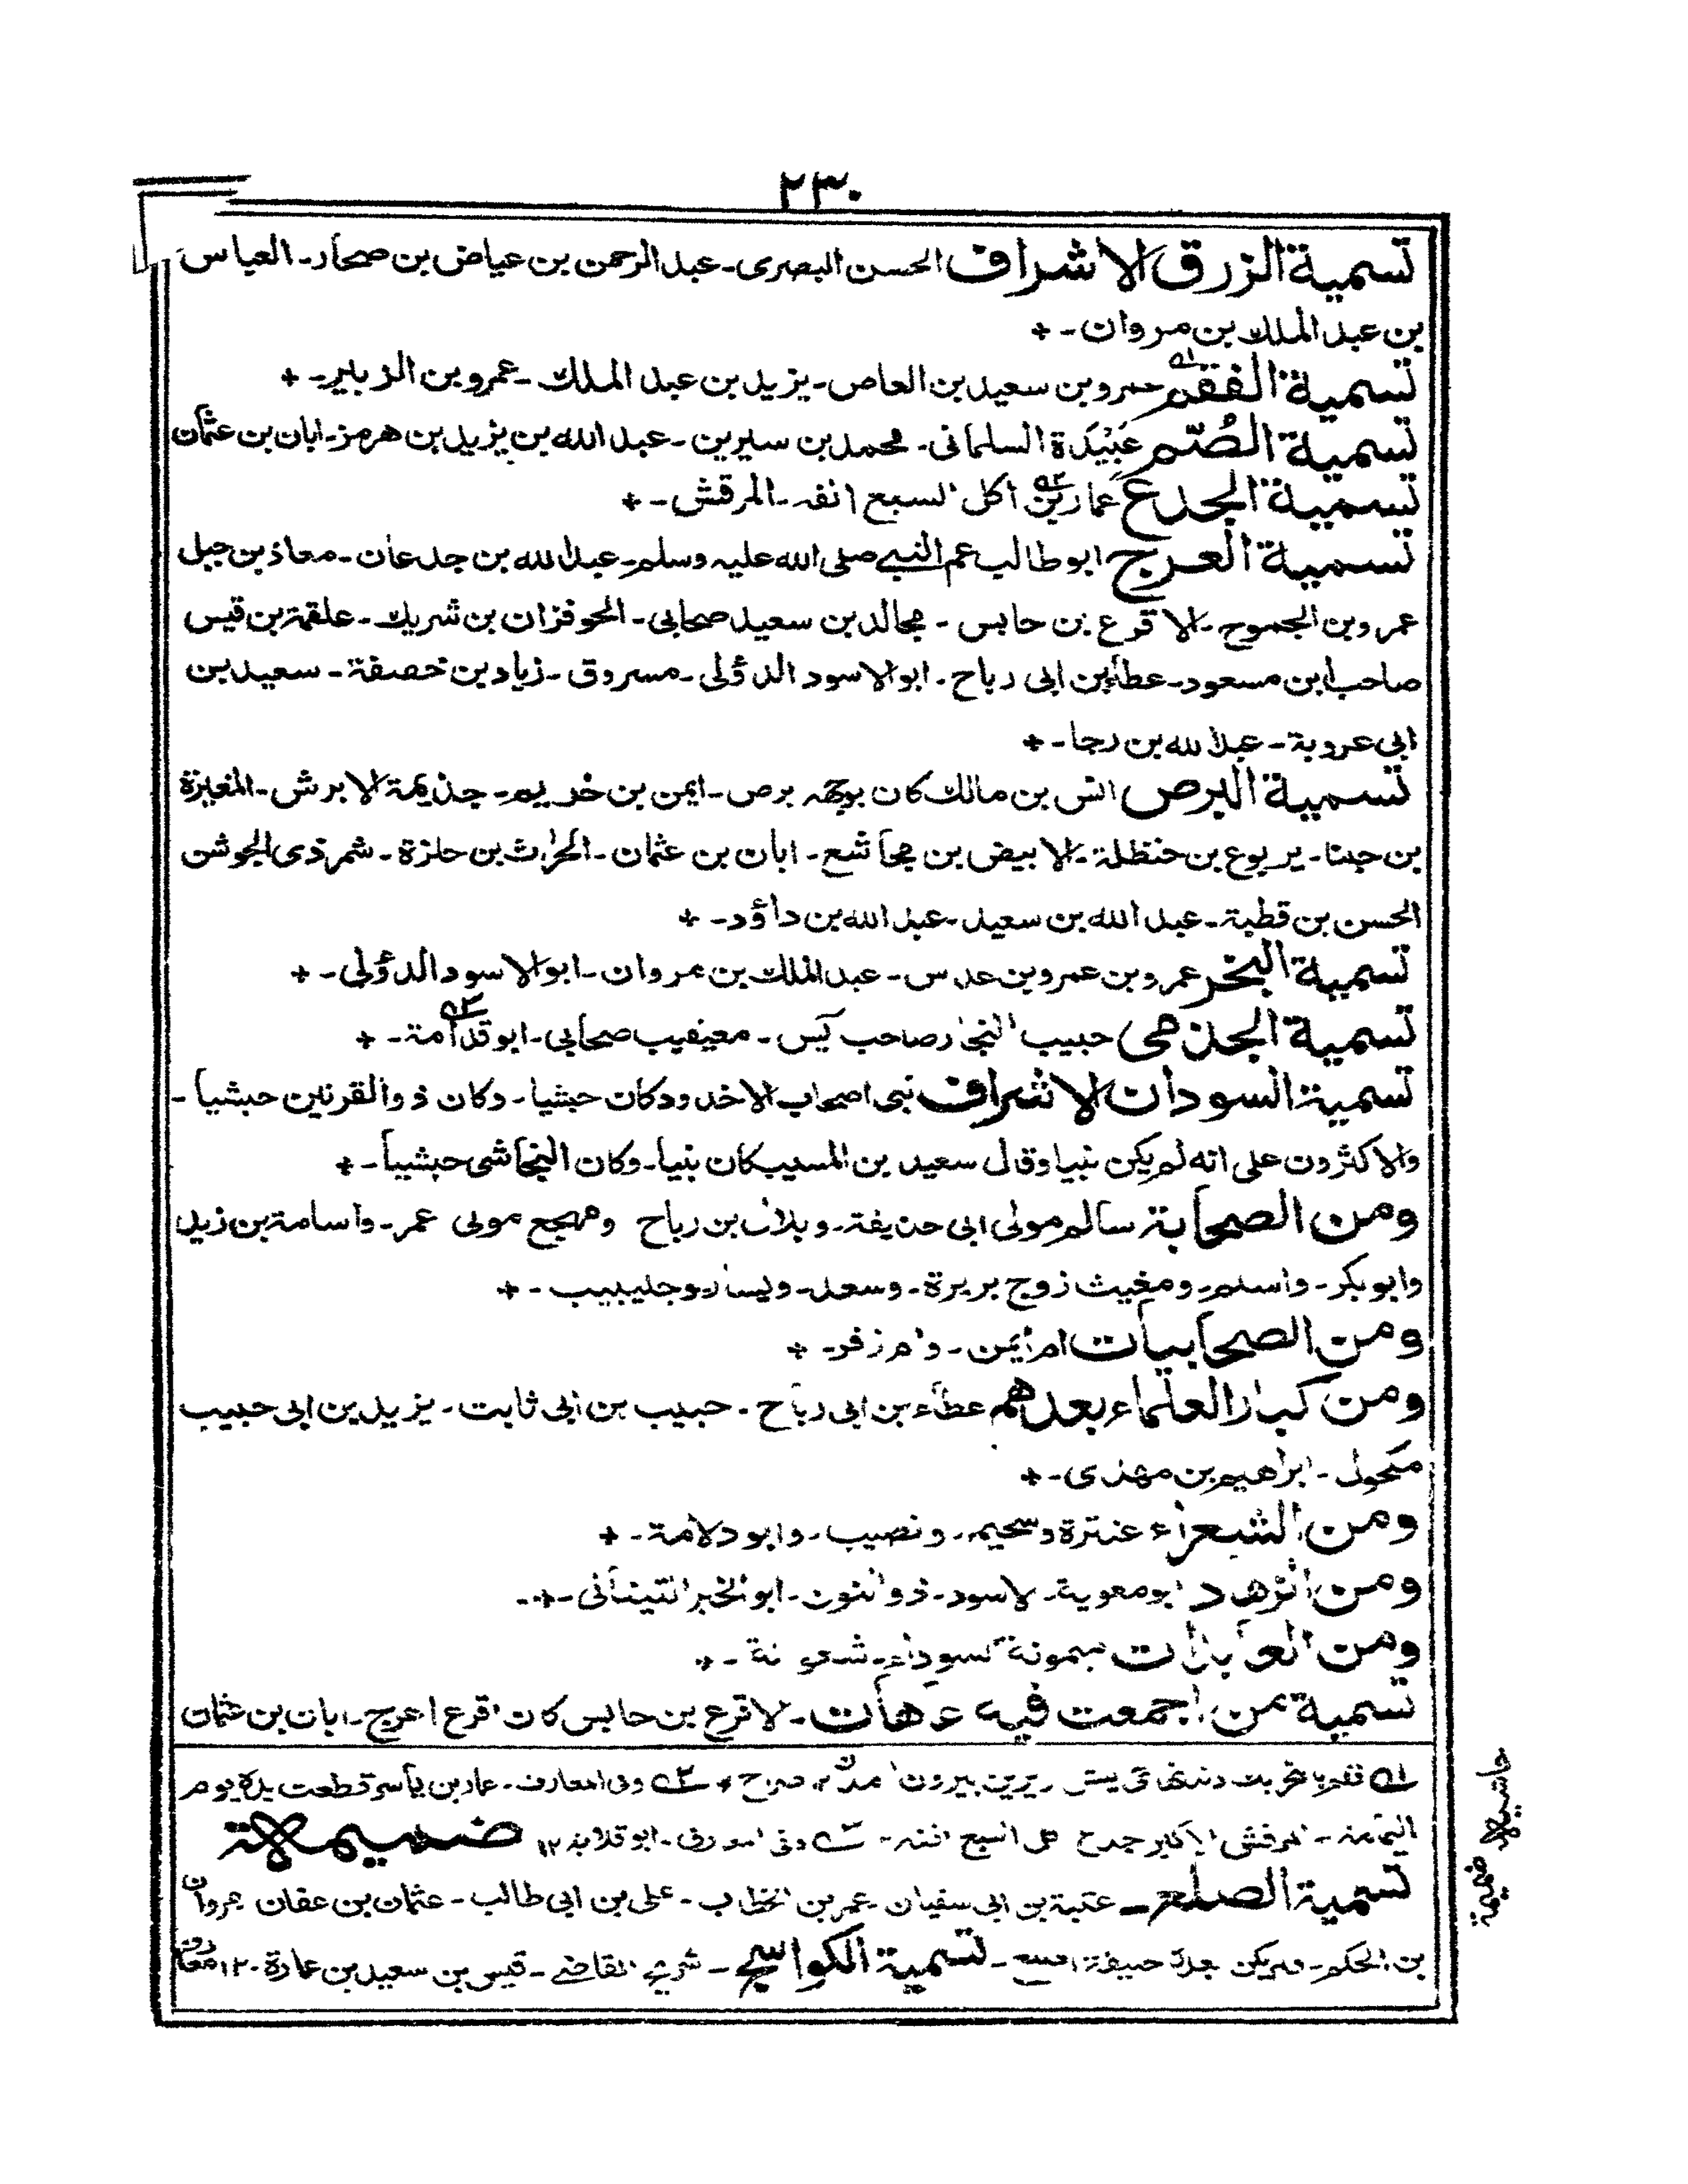 ٢٣٠
تسمية الزرق الاشراف الحسن البصرى۔ عبد الرحمن بن عياض بن صحار۔ العباس
بن عبد الملك بن مروان۔ +
تسمية الفقم عمرو بن سعيد بن العاص۔ يزيد بن عبد الملك۔ عمرو بن الزبير۔ +
تسمية الصُّم عَبِيْدَة السلمانى۔ محمد بن سيرين۔ عبد الله بن يزيد بن هرمز۔ ابان بن عثمان
تسمية الجدع عمار بن اكل السبع انفه۔ المرقش۔ +
تسمية العرج ابو طالب عم النبى صلى الله عليه وسلم۔ عبد الله بن جدعان۔ معاذ بن جبل
عمرو بن الجموح۔ الاقرع بن حابس۔ مجالد بن سعيد صحابى۔ الحوفزان بن شريك۔ علقمة بن قيس
صاحب ابن مسعود۔ عطاء بن ابى رباح۔ ابو الاسود الدؤلى۔ مسروق۔ زياد بن خصفة۔ سعيد بن
ابى عروبة۔ عبد الله بن رجا۔ +
تسمية البرص انس بن مالك كان بوجهه برص۔ ايمن بن خريم۔ جذيمة الابرش۔ المغيرة
بن حبنا۔ يربوع بن حنظلة۔ الابيض بن مجاشع۔ ابان بن عثمان۔ الحراث بن حلزة۔ شمر ذى الجوشن
الحسن بن قطبة۔ عبد الله بن سعيد۔ عبد الله بن داؤد۔ +
تسمية البخر عمرو بن عمرو بن عدس۔ عبد الملك بن مروان۔ ابو الاسود الدؤلى۔ +
تسمية الجذمى حبيب النجار صاحب يٰس۔ معيقيب صحابى۔ ابو قدامة۔ +
تسمية السودان الاشراف نبى اصحاب الاخدود كان حبشيا۔ وكان ذو القرنين حبشيا۔
والاكثرون على انه لم يكن نبيا وقال سعيد بن المسيب كان نبيا۔ وكان النجاشى حبشيا۔ +
ومن الصحابة سالم مولى ابى حذيفة۔ وبلال بن رباح ومهجع مولى عمر۔ واسامة بن زيد
وابو بكر۔ واسلم۔ ومغيث زوج بريرة۔ وسعد۔ ويسار۔ وجليبيب۔ +
ومن الصحابيات ام ايمن۔ وام زفر۔ +
ومن كبار العلماء بعدهم عطاء بن ابى رباح۔ حبيب بن ابى ثابت۔ يزيد بن ابى حبيب
مكحول۔ ابراهيم بن مهدى۔ +
ومن الشعراء عنترة وسحيم۔ ونصيب۔ وابو دلامة۔ +
ومن الزهاد ابو معوية۔ الاسود۔ ذو النون۔ ابو الخير التيناتى۔ +
ومن العابدات ميمونة السوداء۔ شعوانة۔ +
تسمية من اجمعت فيه عاهات۔ الاقرع بن حابس كان اقرع اعرج۔ ابان بن عثمان
بيرون وفى المعارف۔ عمار بن ياسر قطعت يده يوم
اليمامة۔ المرقش الاكبر جدع اكل السبع انفه۔ وفى المعارف۔ ابو قلابه ١٢ ضميمة
تسمية الصلع۔ عتبة بن ابى سفيان عمر بن الخطاب۔ على بن ابى طالب۔ عثمان بن عفان مروان
بن الحكم۔ ولم يكن بعده خليفة اصلع۔ تسمية الكواسج۔ شريح القاضى۔ قيس بن سعيد بن عبادة ١٢ معارف
حاشيه ضميمة